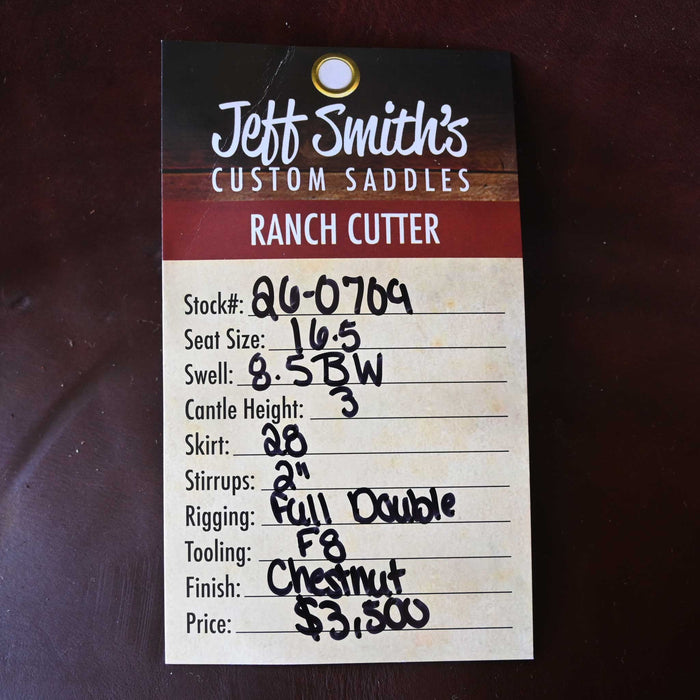 Jeff Smith's
CUSTOM SADDLES
RANCH CUTTER
Stock#: 26-0709
Seat Size: 16.5
Swell: 8.5BW
Cantle Height: 3
Skirt: 28
Stirrups: 2"
Rigging: Full Double
Tooling: F8
Finish: Chestnut
Price: $3,500